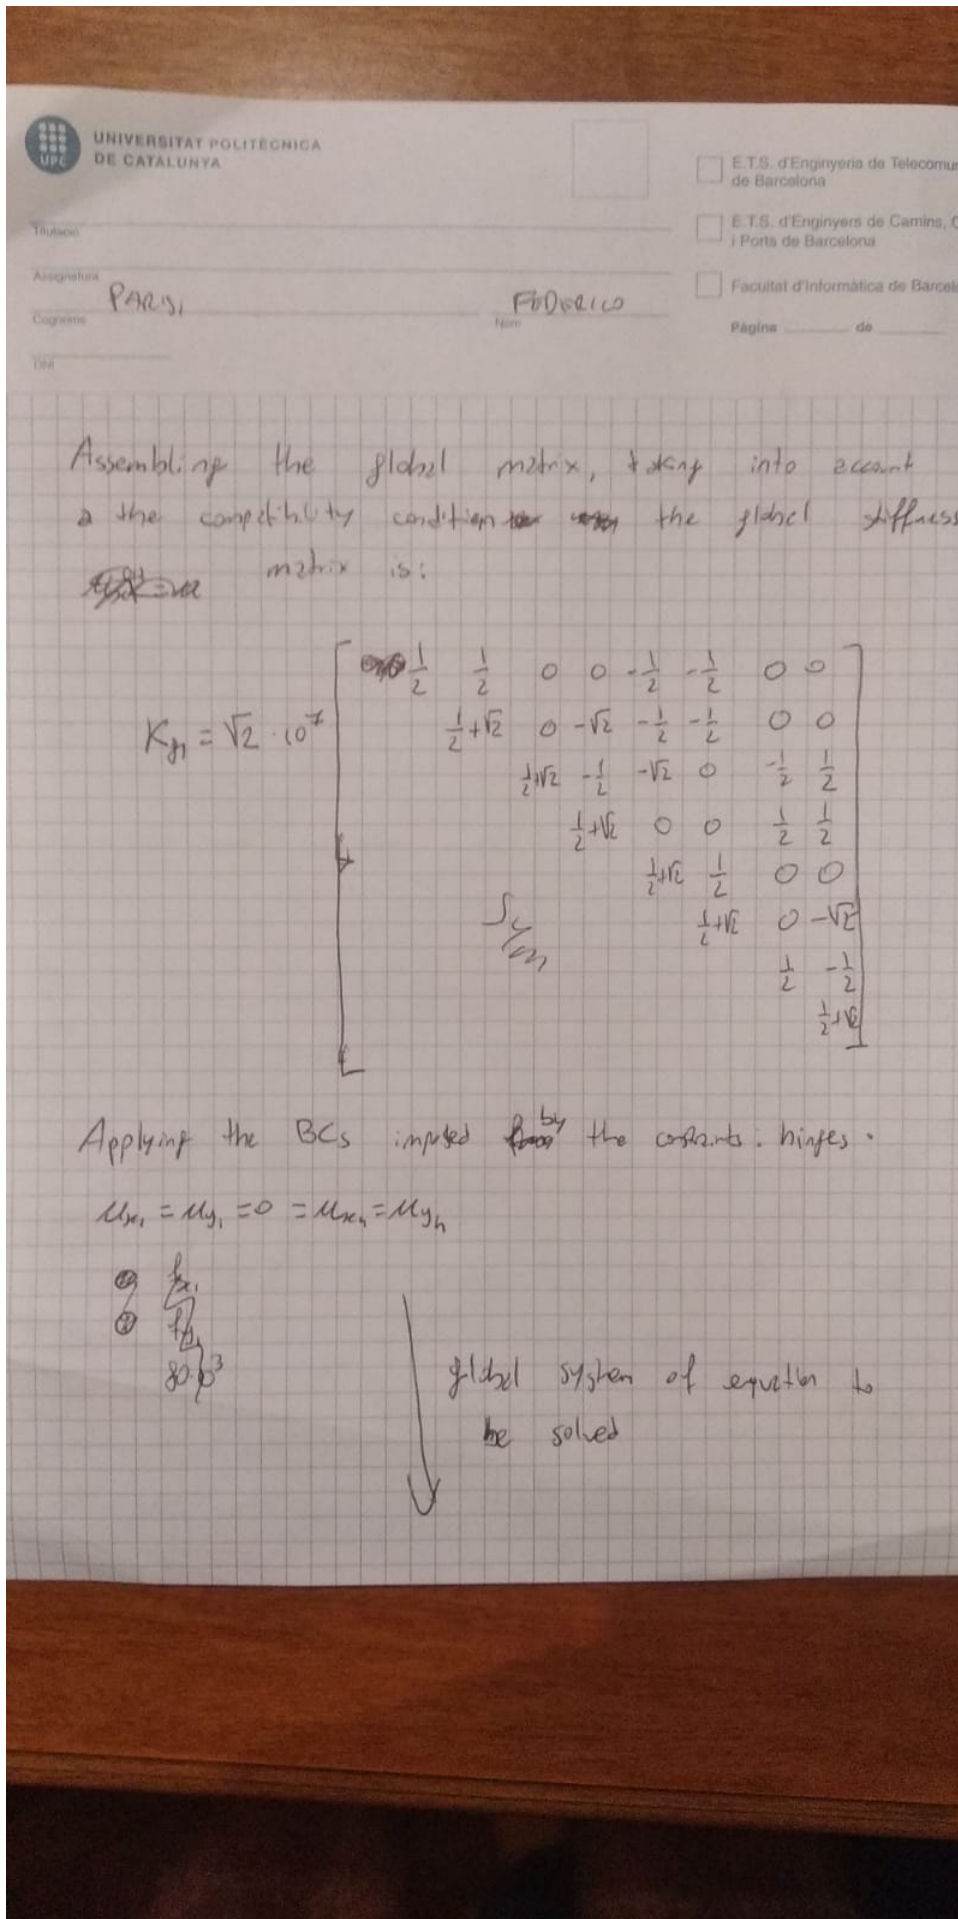 UPC
UNIVERSITAT POLITÈCNICA
DE CATALUNYA
E.T.S. d'Enginyeria de Telecomu
de Barcelona
Titulació
E.T.S. d'Enginyers de Camins, C
i Ports de Barcelona
Assignatura
Facultat d'Informàtica de Barcel
PARISI FEDERICO
Cognoms Nom
Pàgina de
DNI
Assembling the global matrix, taking into account
the compatibility condition the global stiffness
matrix is:
K_gl = √2 · 10^7
1/2 1/2 0 0 -1/2 -1/2 0 0
1/2+√2 0 -√2 -1/2 -1/2 0 0
1/2+√2 -1/2 -√2 0 -1/2 1/2
1/2+√2 0 0 1/2 1/2
1/2+√2 1/2 0 0
Sym 1/2+√2 0 -√2
1/2 -1/2
1/2+√2
Applying the BCs imposed by the constraints: hinges.
u_x1 = u_y1 = 0 = u_x4 = u_y4
f_x1
f_y1
80·10^3
global system of equation to
be solved